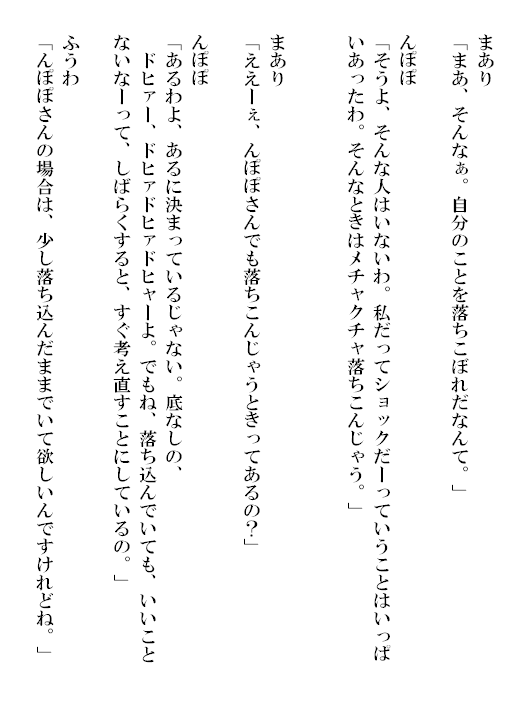 まあり
「まあ、そんなぁ。自分のことを落ちこぼれだなんて。」
んぽぽ
「そうよ、そんな人はいないわ。私だってショックだーっていうことはいっぱ
いあったわ。そんなときはメチャクチャ落ちこんじゃう。」
まあり
「ええーぇ、んぽぽさんでも落ちこんじゃうときってあるの?」
んぽぽ
「あるわよ、あるに決まっているじゃない。底なしの、
ドヒァー、ドヒァドヒァドヒャーよ。でもね、落ち込んでいても、いいこと
ないなーって、しばらくすると、すぐ考え直すことにしているの。」
ふうわ
「んぽぽさんの場合は、少し落ち込んだままでいて欲しいんですけれどね。」